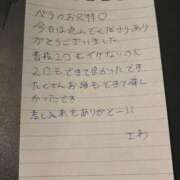 ベラのお兄様♡
今日は遊んでくださりあり
がとうございました
普段2回もイケないのに
2回もできて良かったです
たくさんお話もできて楽し
かったです
差し入れもありがとー!!